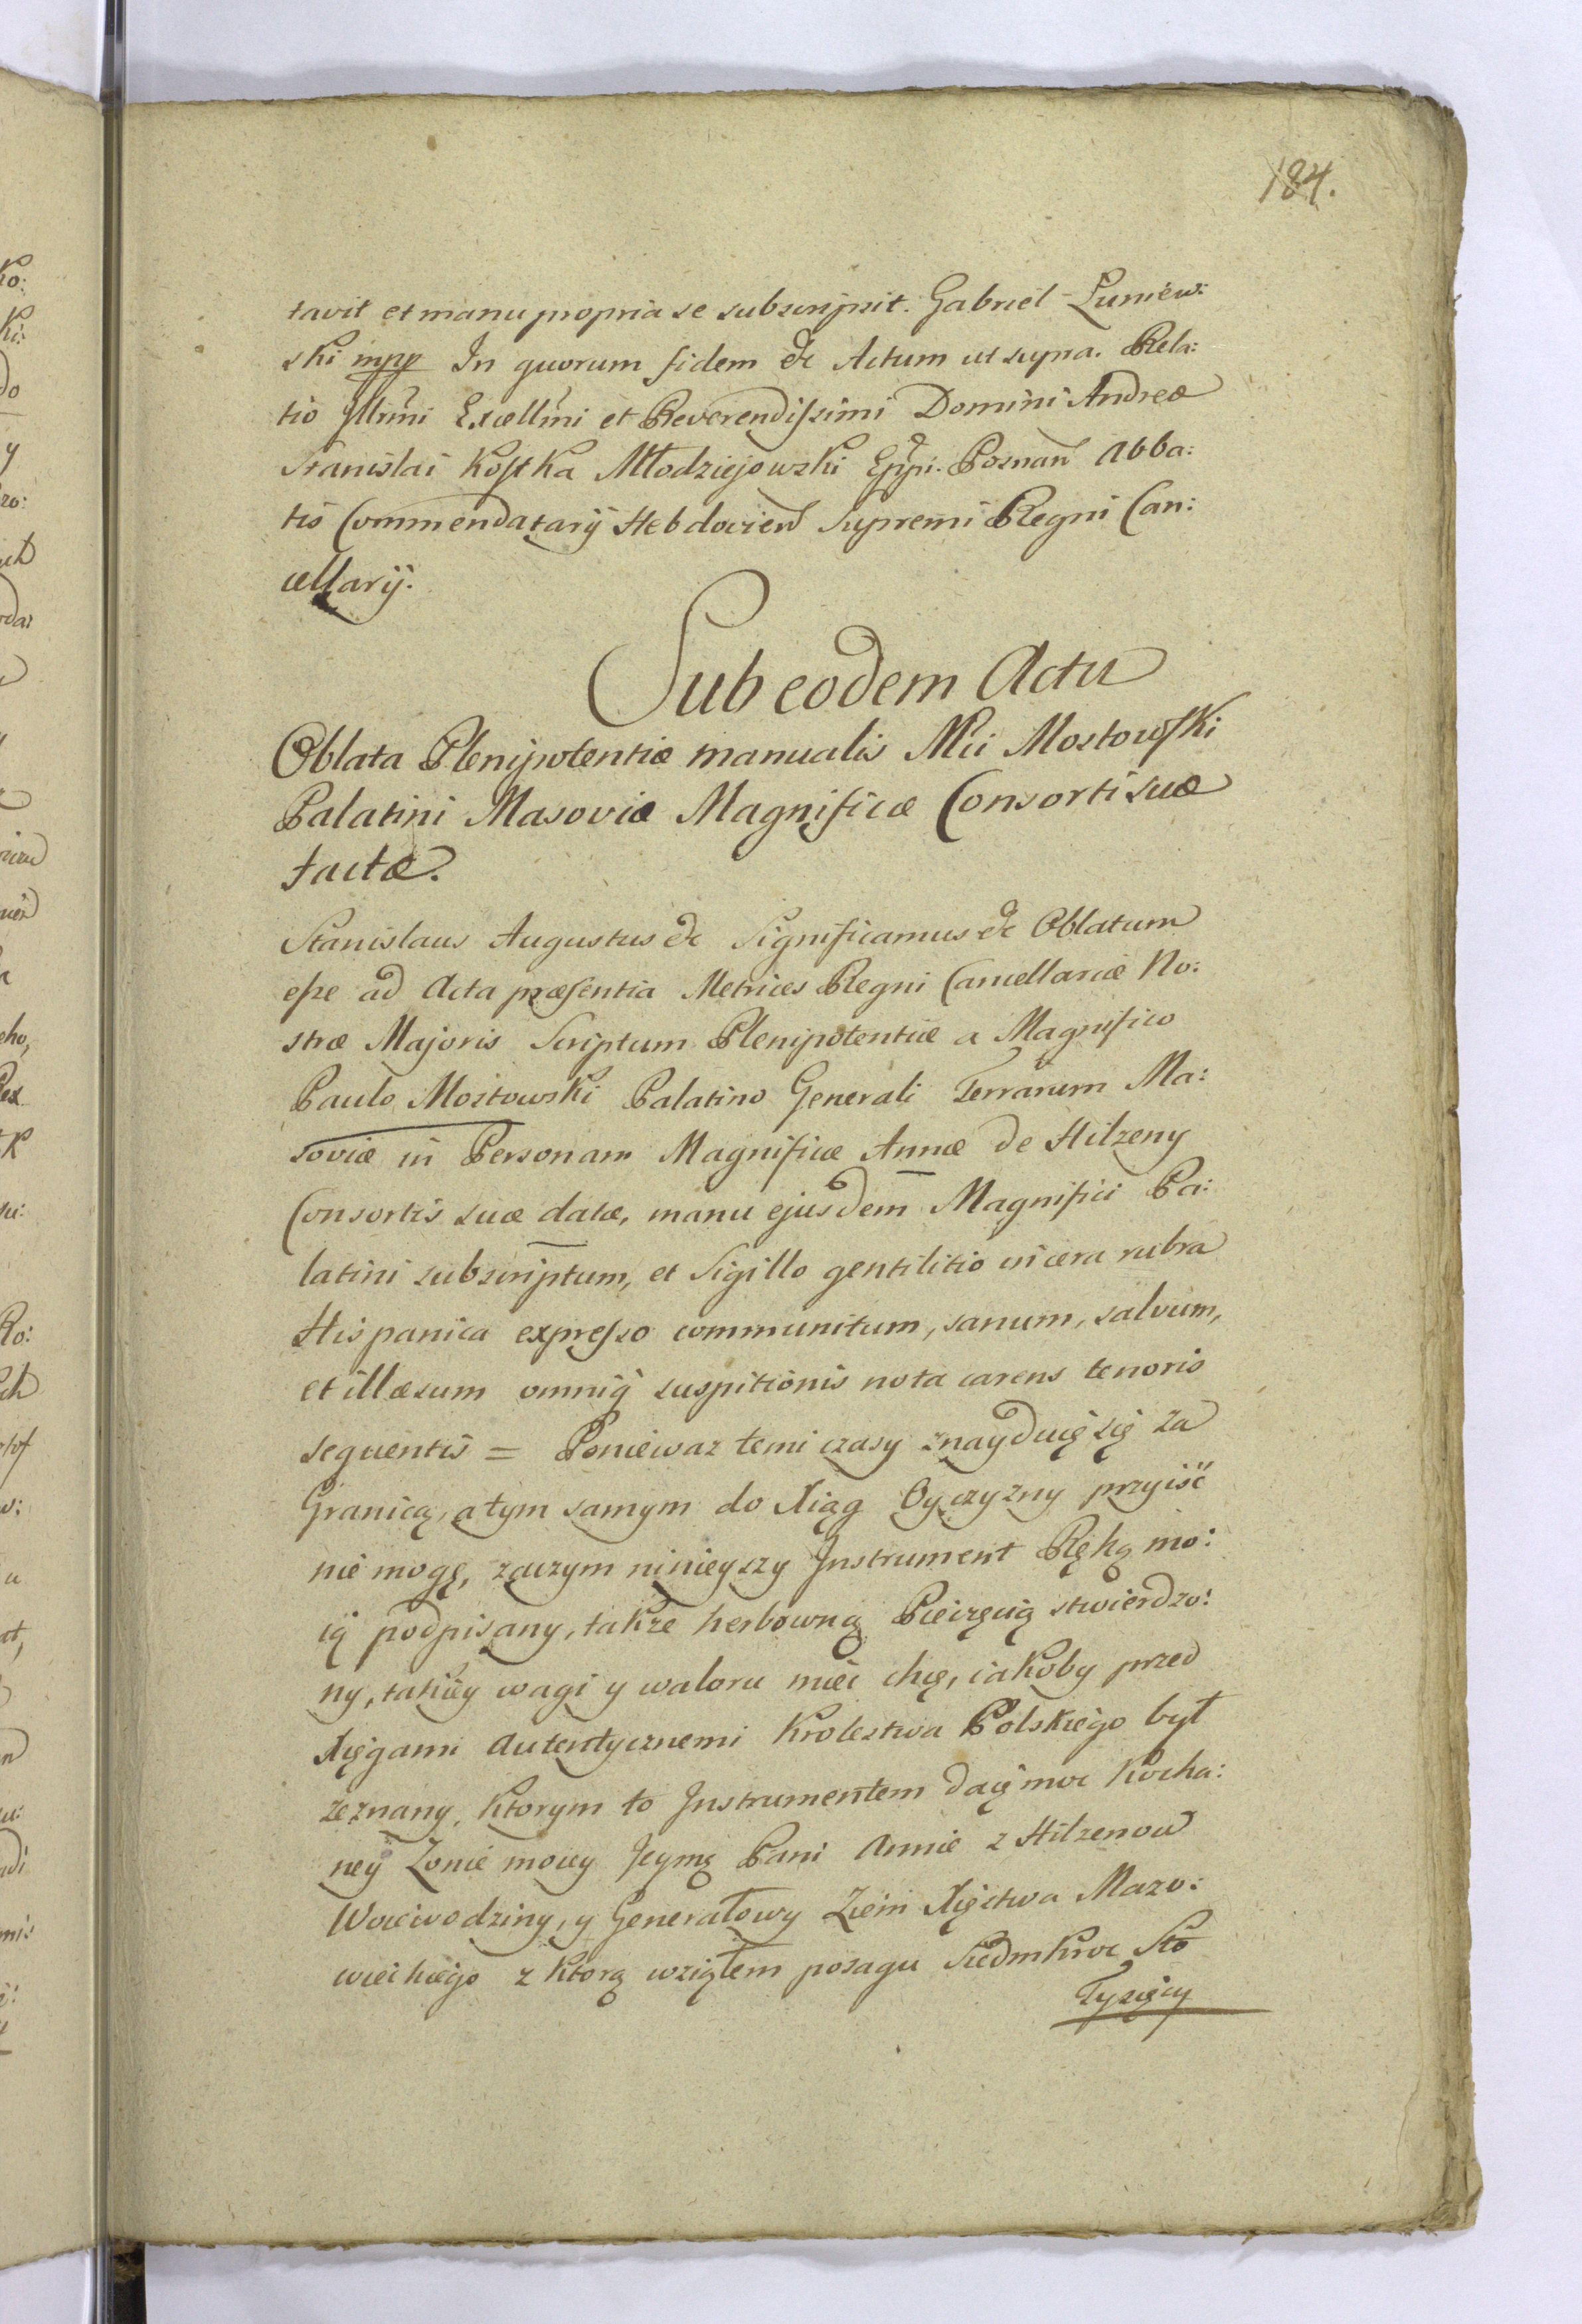 184.
tavit et manu propria se subscripsit. Gabriel Łuniew:
ski mpp In quorum fidem &c Actum ut supra. Rela:
tio Illmi Excellmi et Reverendissimi Domini Andreæ
Stanislai Kostka Młodziejowski Eppi. Posnan Abba:
tis Commendatarij Hebdovien Supremi Regni Can:
cellarij.
Sub eodem Actu
Oblata Plenipotentiæ manualis Mci Mostowski
Palatini Masoviæ Magnificæ Consorti suæ
factæ.
Stanislaus Augustus &c Significamus &c Oblatum
esse ad Acta præsentia Metrices Regni Cancellariæ No:
stræ Majoris Scriptum Plenipotentiæ a Magnifico
Paulo Mostowski Palatino Generali Terrarum Ma:
soviæ in Personam Magnificæ Annæ de Hilzeny
Consortis suæ datæ, manu ejusdem Magnifici Pa:
latini subscriptum, et Sigillo gentilitio in cera rubra
Hispanica expresso communitum, sanum, salvum,
et illæsum omniq suspitionis nota carens tenoris
sequentis = Poniewaz temi czasy znayduię się za
Granicą, a tym samym do Xiąg Oyczyzny przyiść
nie mogę, zaczym ninieyszy Instrument Ręką mo:
ią podpisany, także herbowną Pieczęcią stwierdzo:
ny, takiey wagi y waloru mieć chcę, iakoby przed
Xięgami Autentycznemi Krolestwa Polskiego był
zeznany, Ktorym to Instrumentem daię moc Kocha:
ney Zonie moiey Jeymę Pani Annie z Hilzenow
Woiewodziny, y Generałowy Ziem Xięstwa Mazo:
wieckiego z Ktorą wziąłem posagu Siedmkroc Sto
Tysięcy